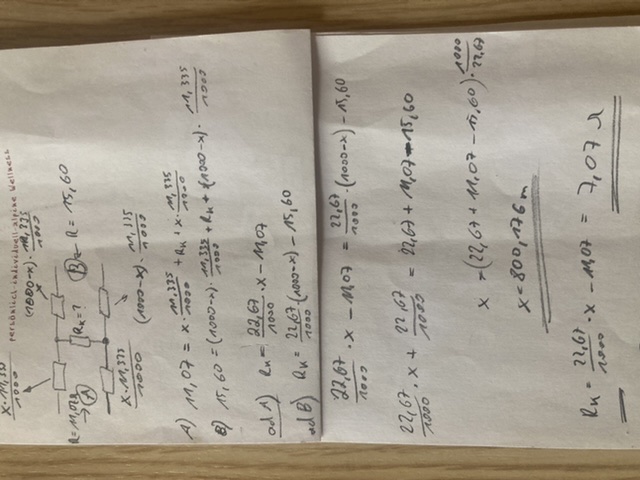 persönlich·individuell·alpine Wellness
x·11,335/1000
(1000-x)·11,335/1000
R=11,07Ω → A
Rk=?
B ← R = 15,60
x·11,335/1000
(1000-x)·11,335/1000
A) 11,07 = x·11,335/1000 + Rk + x·11,335/1000
B) 15,60 = (1000-x)·11,335/1000 + Rk + (1000-x)·11,335/1000
ad A) Rk = 22,67/1000·x - 11,07
ad B) Rk = 22,67/1000·(1000-x) - 15,60
22,67/1000·x - 11,07 = 22,67/1000·(1000-x) - 15,60
22,67/1000·x + 22,67/1000 = 22,67 + 11,07 - 15,60
x = (22,67 + 11,07 - 15,60)·1000/22,67
x = 800,176 m
Rk = 22,67/1000·x - 11,07 = 7,07 Ω